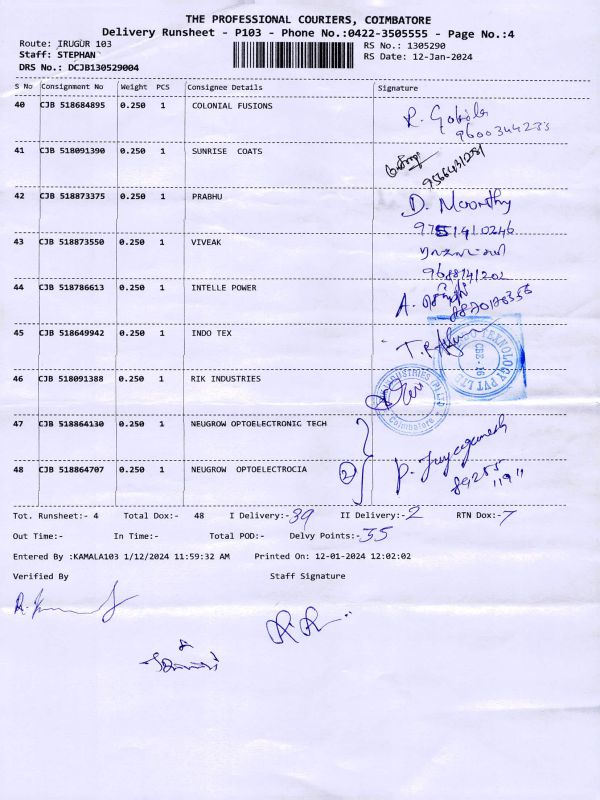 THE PROFESSIONAL COURIERS, COIMBATORE
Delivery Runsheet - P103 - Phone No.:0422-3505555 - Page No.:4
Route: IRUGUR 103
RS No.: 1305290
Staff: STEPHAN
RS Date: 12-Jan-2024
DRS No.: DCJB130529004
S No Consignment No Weight PCS Consignee Details Signature
40 CJB 518684895 0.250 1 COLONIAL FUSIONS
9600344233
41 CJB 518091390 0.250 1 SUNRISE COATS
42 CJB 518873375 0.250 1 PRABHU D. Moorthy
9751410246
43 CJB 518873550 0.250 1 VIVEAK
9688741202
44 CJB 518786613 0.250 1 INTELLE POWER
45 CJB 518649942 0.250 1 INDO TEX
TEXNOLOGY PVT LTD
CBE - 16
46 CJB 518091388 0.250 1 RIK INDUSTRIES
INDUSTRIES (P) LTD
Coimbatore
47 CJB 518864130 0.250 1 NEUGROW OPTOELECTRONIC TECH
48 CJB 518864707 0.250 1 NEUGROW OPTOELECTROCIA 2
Tot. Runsheet:- 4 Total Dox:- 48 I Delivery:-39 II Delivery:-2 RTN Dox:-7
Out Time:- In Time:- Total POD:- Delvy Points:-35
Entered By :KAMALA103 1/12/2024 11:59:32 AM Printed On: 12-01-2024 12:02:02
Verified By Staff Signature